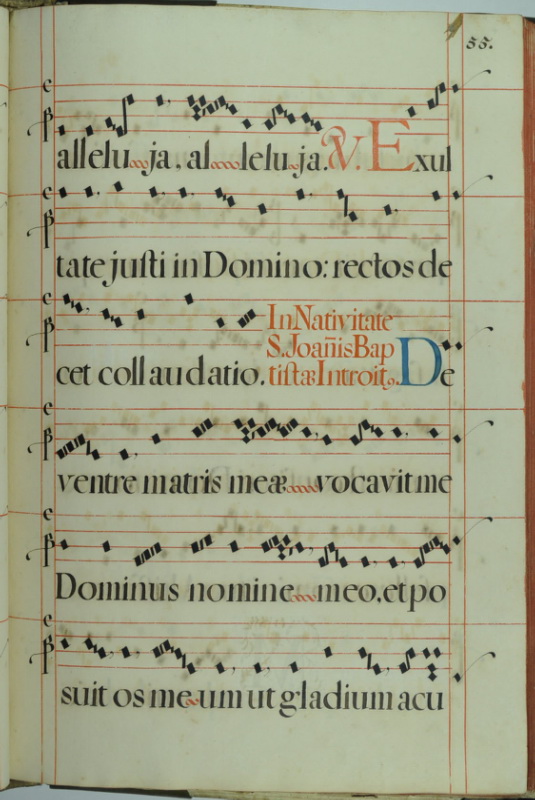 55.
alleluja, alleluja. V. Exul
tate justi in Domino: rectos de
cet collaudatio.
In Nativitate
S. Joan̄is Bap
tistæ Introit.
De
ventre matris meæ vocavit me
Dominus nomine meo, et po
suit os meum ut gladium acu